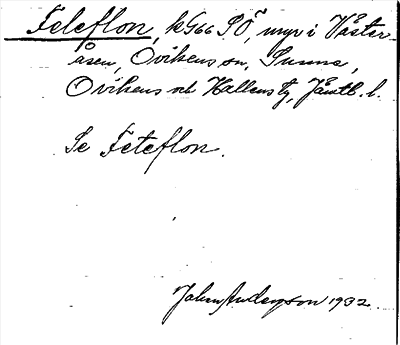 Feleflon, kG66 SÖ, myr i Väster-
åsen, Ovikens sn, Sunne,
Ovikens och Hallens tg, Jämtl. l.
Se Feteflon.
John Anderson 1932